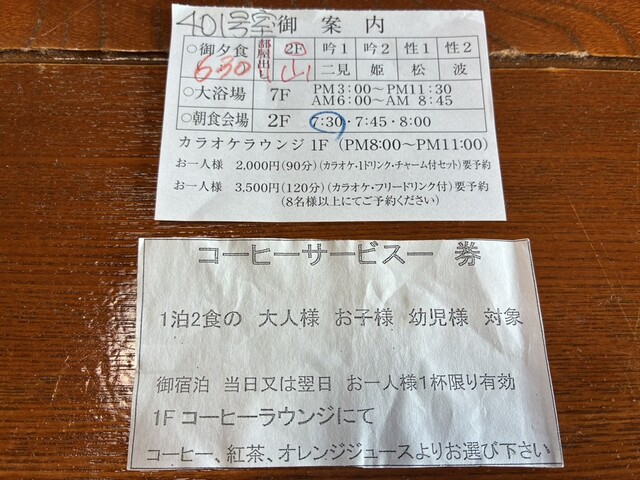 401号室 御案内
○御夕食 部屋出し 2F 吟1 吟2 性1 性2
630 山 二見 姫 松 波
○大浴場 7F PM3:00〜PM11:30
AM6:00〜AM 8:45
○朝食会場 2F 7:30・7:45・8:00
カラオケラウンジ 1F (PM8:00〜PM11:00)
お一人様 2,000円(90分)(カラオケ・1ドリンク・チャーム付セット)要予約
お一人様 3,500円(120分)(カラオケ・フリードリンク付)要予約
(8名様以上にてご予約ください)
コーヒーサービスー 券
1泊2食の 大人様 お子様 幼児様 対象
御宿泊 当日又は翌日 お一人様1杯限り有効
1F コーヒーラウンジにて
コーヒー、紅茶、オレンジジュースよりお選び下さい